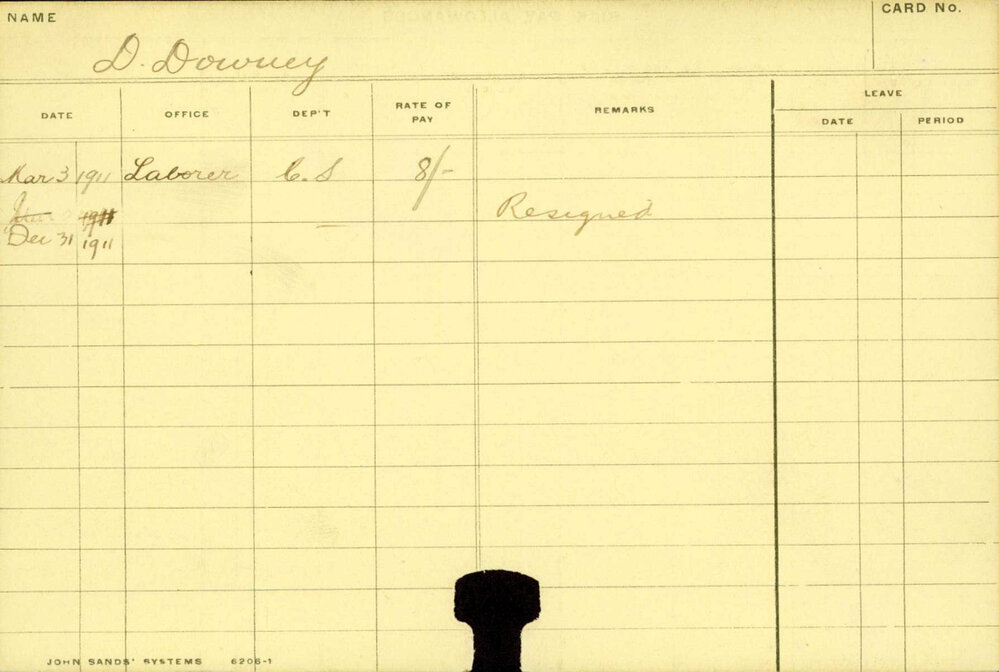 NAME
CARD No.
D. Downey
DATE OFFICE DEP'T RATE OF PAY REMARKS LEAVE
DATE PERIOD
Mar 3 1911 Laborer C.S 8/-
1911 Resigned
Dec 31 1911
JOHN SANDS' SYSTEMS 6206-1